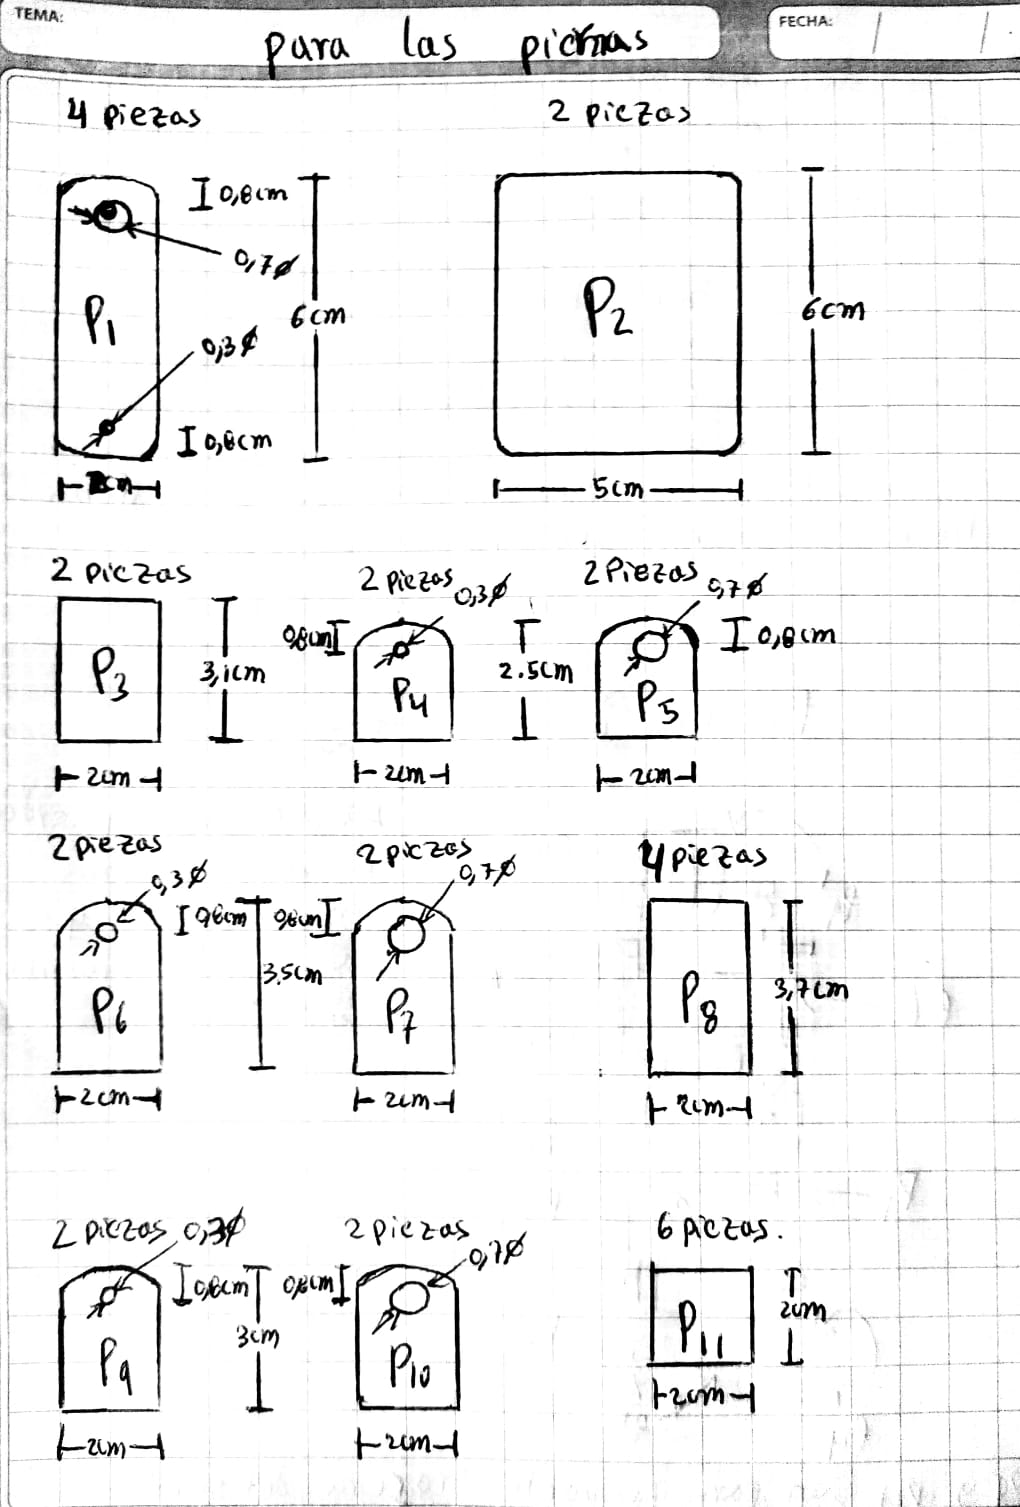 TEMA:
para las piernas
FECHA:
4 piezas
2 piezas
0,8cm
0,7ø
P1
6cm
0,3ø
0,8cm
2cm
P2
6cm
5cm
2 piezas
P3
3,1cm
2cm
2 piezas
0,3ø
0,8cm
P4
2.5cm
2cm
2 Piezas
0,7ø
0,8cm
P5
2cm
2 piezas
0,3ø
0,8cm
P6
3.5cm
2cm
2 piezas
0,7ø
0,8cm
P7
2cm
4 piezas
P8
3,7cm
2cm
2 piezas
0,3ø
0,8cm
P9
3cm
2cm
2 piezas
0,7ø
0,8cm
P10
2cm
6 piezas.
P11
2cm
2cm